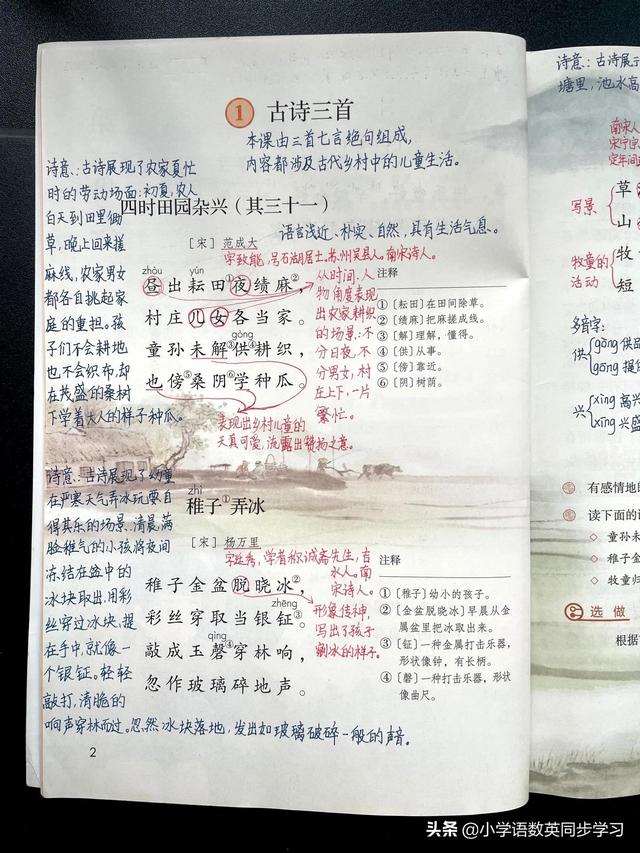 1 古诗三首
本课由三首七言绝句组成,
内容都涉及古代乡村中的儿童生活。
诗意:古诗展现了农家夏忙
时的劳动场面:初夏,农人
白天到田里锄
草,晚上回来搓
麻线,农家男女
都各自挑起家
庭的重担。孩
子们不会耕地
也不会织布,却
在茂盛的桑树
下学着大人的样子种瓜。
四时田园杂兴(其三十一)
语言浅近、朴实、自然,具有生活气息。
[宋] 范成大
字致能,号石湖居士,苏州吴县人。南宋诗人。
zhòu yún
昼出耘田①夜绩麻②,
村庄儿女各当家。
gòng
童孙未解③供④耕织,
也傍⑤桑阴⑥学种瓜。
从时间、人
物角度表现
出农家耕织
的场景:不
分日夜,不
分男女,村
庄上下,一片
繁忙。
表现出乡村儿童的
天真可爱,流露出赞扬之意。
注释
①[耘田]在田间除草。
②[绩麻]把麻搓成线。
③[解]理解,懂得。
④[供]从事。
⑤[傍]靠近。
⑥[阴]树荫。
诗意:古诗展现了幼童
在严寒天气弄冰玩耍自
得其乐的场景。清晨满
脸稚气的小孩将夜间
冻结在盆中的
冰块取出,用彩
丝穿过冰块,提
在手中,就像一
个银钲。轻轻
敲打,清脆的
响声穿林而过。忽然冰块落地,发出如玻璃破碎一般的声音。
zhì
稚子①弄冰
[宋] 杨万里
字廷秀,学者称诚斋先生,吉
水人。南
宋诗人。
稚子金盆脱晓冰②,
zhēng
彩丝穿取当银钲③。
qìng
敲成玉磬④穿林响,
忽作玻璃碎地声。
形象传神,
写出了孩子
剜冰的样子。
注释
①[稚子]幼小的孩子。
②[金盆脱晓冰]早晨从金
属盆里把冰取出来。
③[钲]一种金属打击乐器,
形状像钟,有长柄。
④[磬]一种打击乐器,形状
像曲尺。
2
诗意:古诗展示
塘里,池水高
南宋人
宋宁宗
定年间
草
写景
山
牧童的
活动
牧
短
多音字:
供 gōng 供品
gòng 提供
兴 xìng 高兴
xīng 兴盛
有感情地
读下面的诗
◇ 童孙未
◇ 稚子金
◇ 牧童归
选做
根据
头条 @小学语数英同步学习